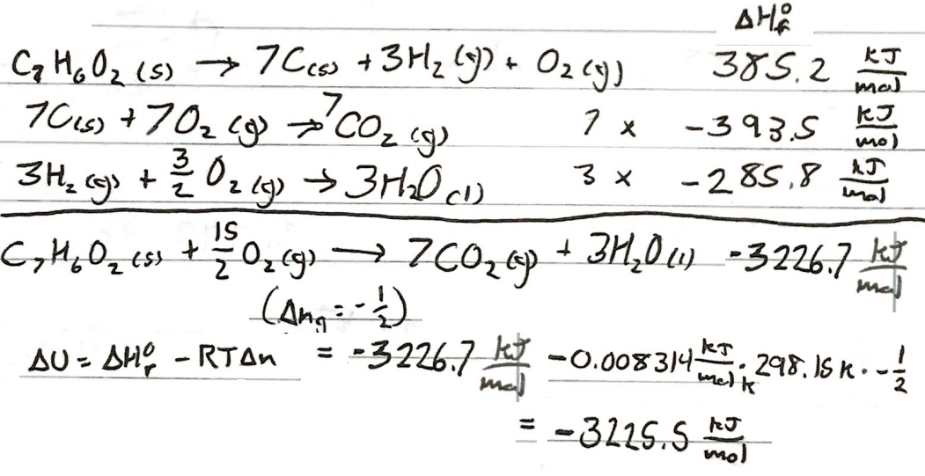 ΔH°f
C7H6O2 (s) → 7C(s) + 3H2 (g) + O2 (g) 385.2 kJ/mol
7C(s) + 7O2 (g) → 7CO2 (g) 7 x -393.5 kJ/mol
3H2 (g) + 3/2 O2 (g) → 3H2O (l) 3 x -285.8 kJ/mol
C7H6O2 (s) + 15/2 O2 (g) → 7CO2 (g) + 3H2O (l) -3226.7 kJ/mol
(Δng = -1/2)
ΔU = ΔH°r - RTΔn = -3226.7 kJ/mol - 0.008314 kJ/mol·K · 298.15 K · -1/2
= -3225.5 kJ/mol